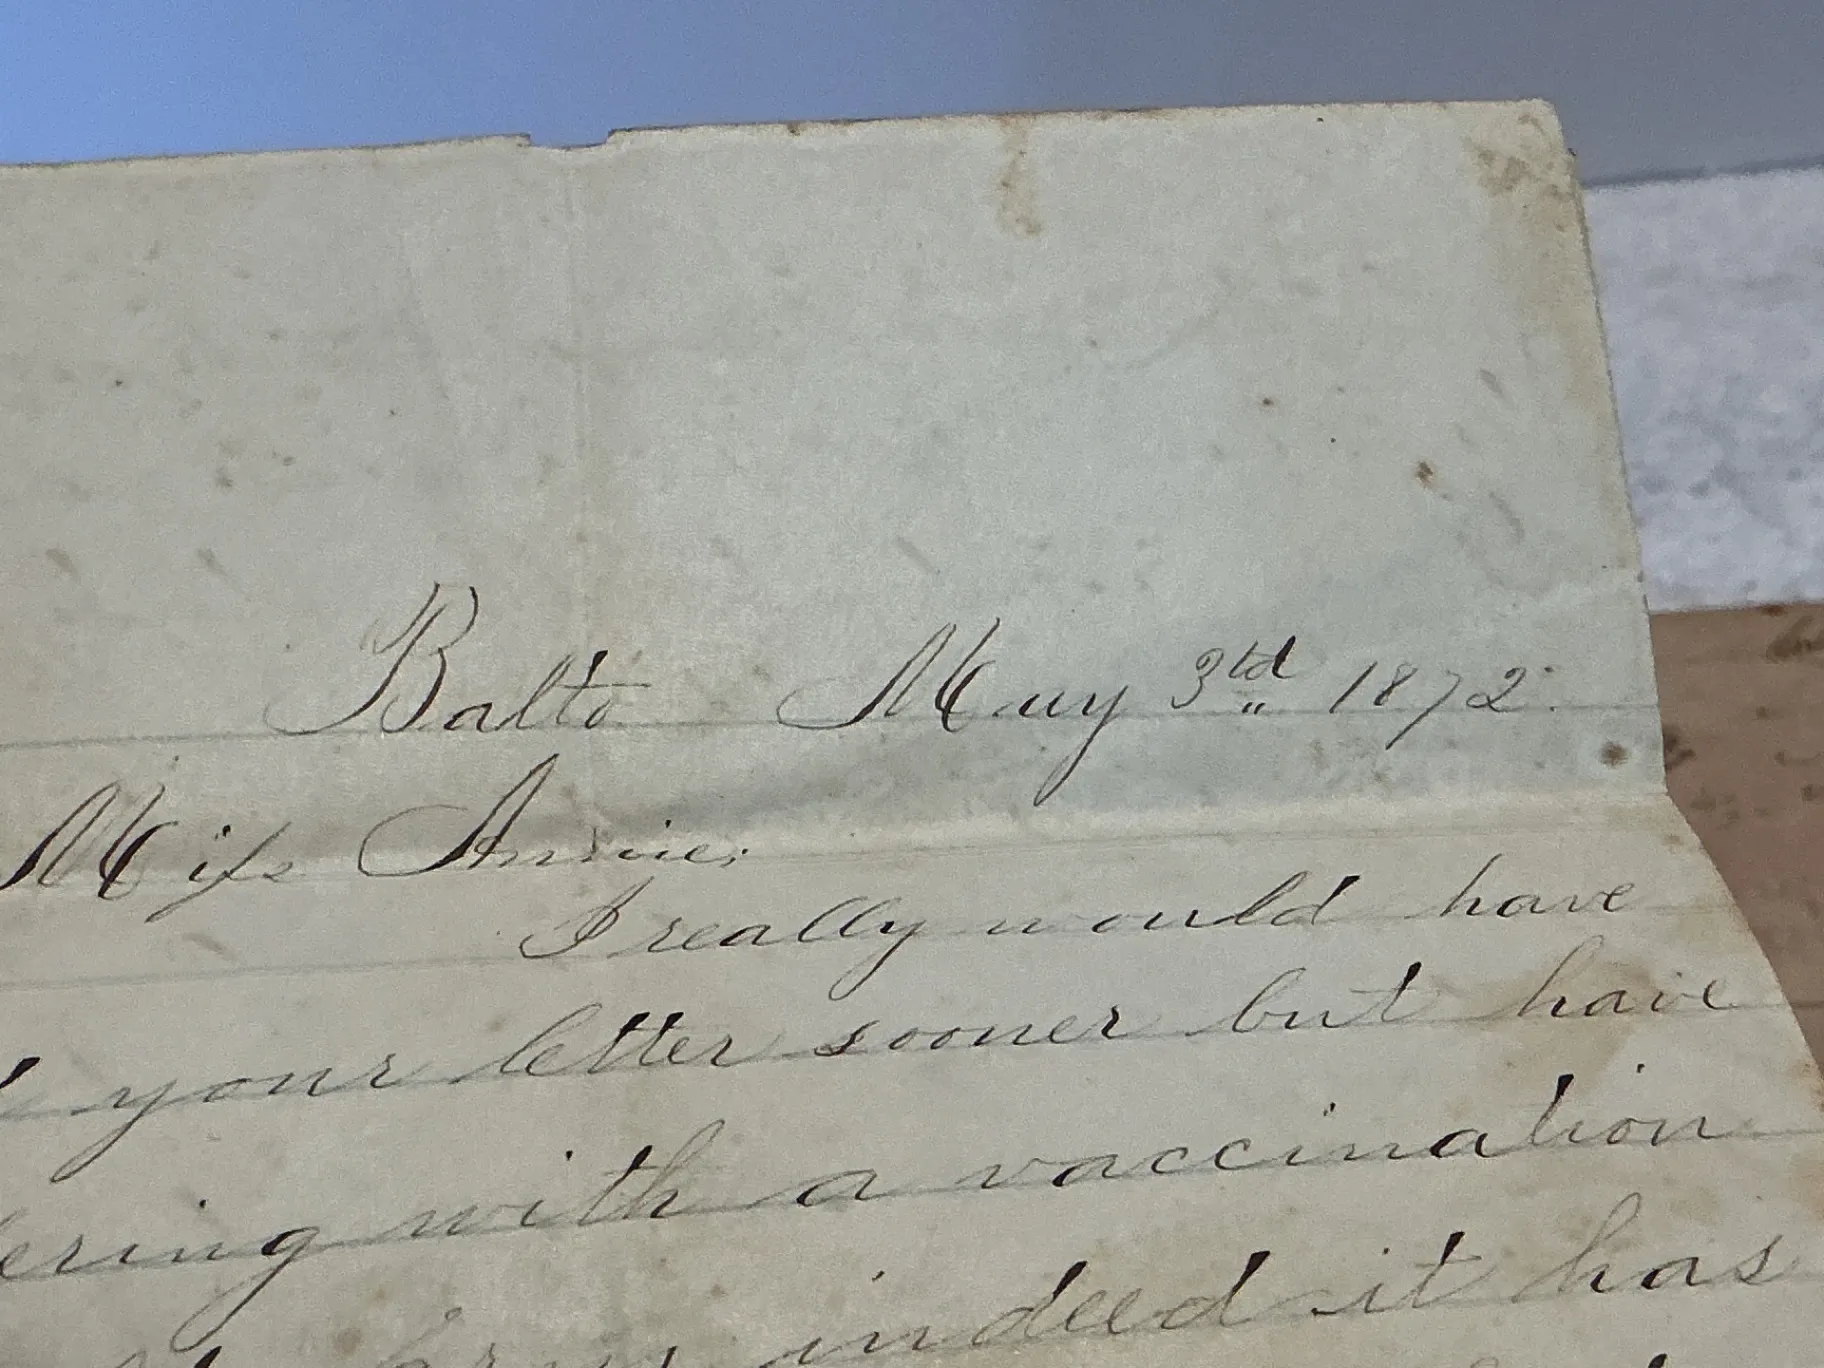 Balto May 3td 1872.
Miss Annie;
I really would have
your letter sooner but have
ering with a vaccination
indeed it has